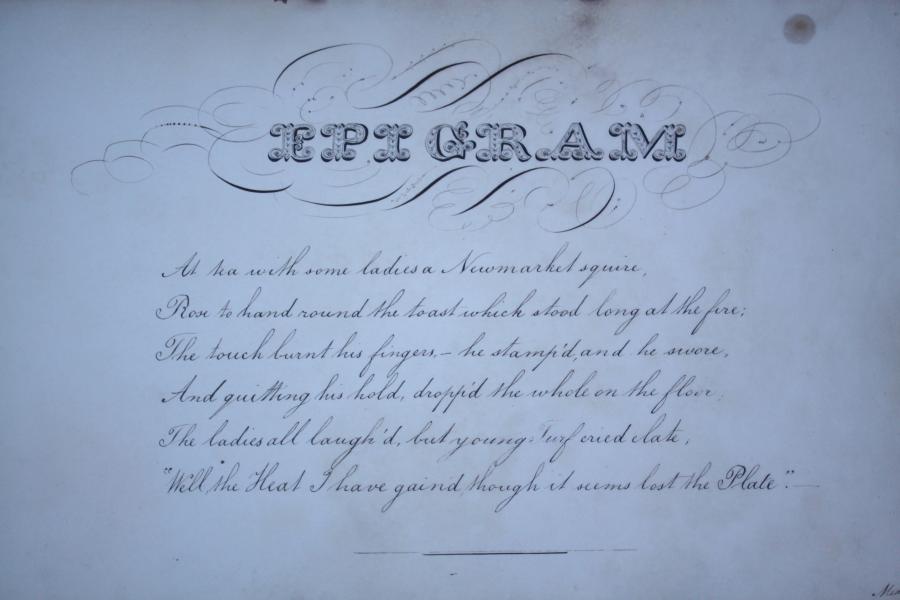 EPIGRAM
At tea with some ladies a Newmarket squire,
Rose to hand round the toast which stood long at the fire;
The touch burnt his fingers,– he stamp'd, and he swore,
And quitting his hold, dropp'd the whole on the floor;
The ladies all laugh'd, but young Turf cried elate,
"Well, the Heat I have gain'd, though it seems lost the Plate".—